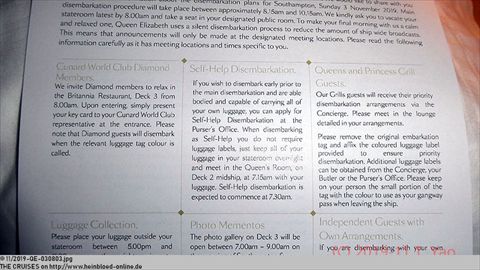 disembarkation plans for Southampton, Sunday 3 November 2019. Main
disembarkation procedure will take place between approximately 8.15am and 10.15am. We kindly ask you to vacate your
stateroom latest by 8.00am and take a seat in your designated public room. To make your final morning with us a calm
and relaxed one, Queen Elizabeth uses a silent disembarkation process to reduce the amount of ship wide broadcasts.
This means that announcements will only be made at the designated meeting locations. Please read the following
information carefully as it has meeting locations and times specific to you.
Cunard World Club Diamond
Members.
We invite Diamond members to relax in
the Britannia Restaurant, Deck 3 from
8.00am. Upon entering, simply present
your key card to your Cunard World Club
representative at the entrance. Please
note that Diamond guests will disembark
when the relevant luggage tag colour is
called.
Self-Help Disembarkation.
If you wish to disembark early prior to
the main disembarkation and are able
bodied and capable of carrying all of
your own luggage, you can apply for
Self-Help Disembarkation at the
Purser's Office. When disembarking
as Self-Help you do not require
luggage labels, just keep all of your
luggage in your stateroom overnight
and meet in the Queen's Room, on
Deck 2 midship, at 7.15am with your
luggage. Self-Help disembarkation is
expected to commence at 7.30am.
Queens and Princess Grill
Guests.
Our Grills guests will receive their priority
disembarkation arrangements via the
Concierge. Please meet in the lounge
detailed in your arrangements.
Please remove the original embarkation
tag and affix the coloured luggage label
provided to ensure priority
disembarkation. Additional luggage labels
can be obtained from the Concierge, your
Butler or the Purser's Office. Please keep
on your person the small portion of the
tag with the colour to use as your gangway
pass when leaving the ship.
Luggage Collection.
Please place your luggage outside your
stateroom between 5.00pm and
Photo Mementos
The photo gallery on Deck 3 will be
open between 7.00am - 9.00am on
Independent Guests with
Own Arrangements.
If you are disembarking with your own
©11/2019-QE-030803.jpg
THE CRUISES on http://www.heinbloed-online.de